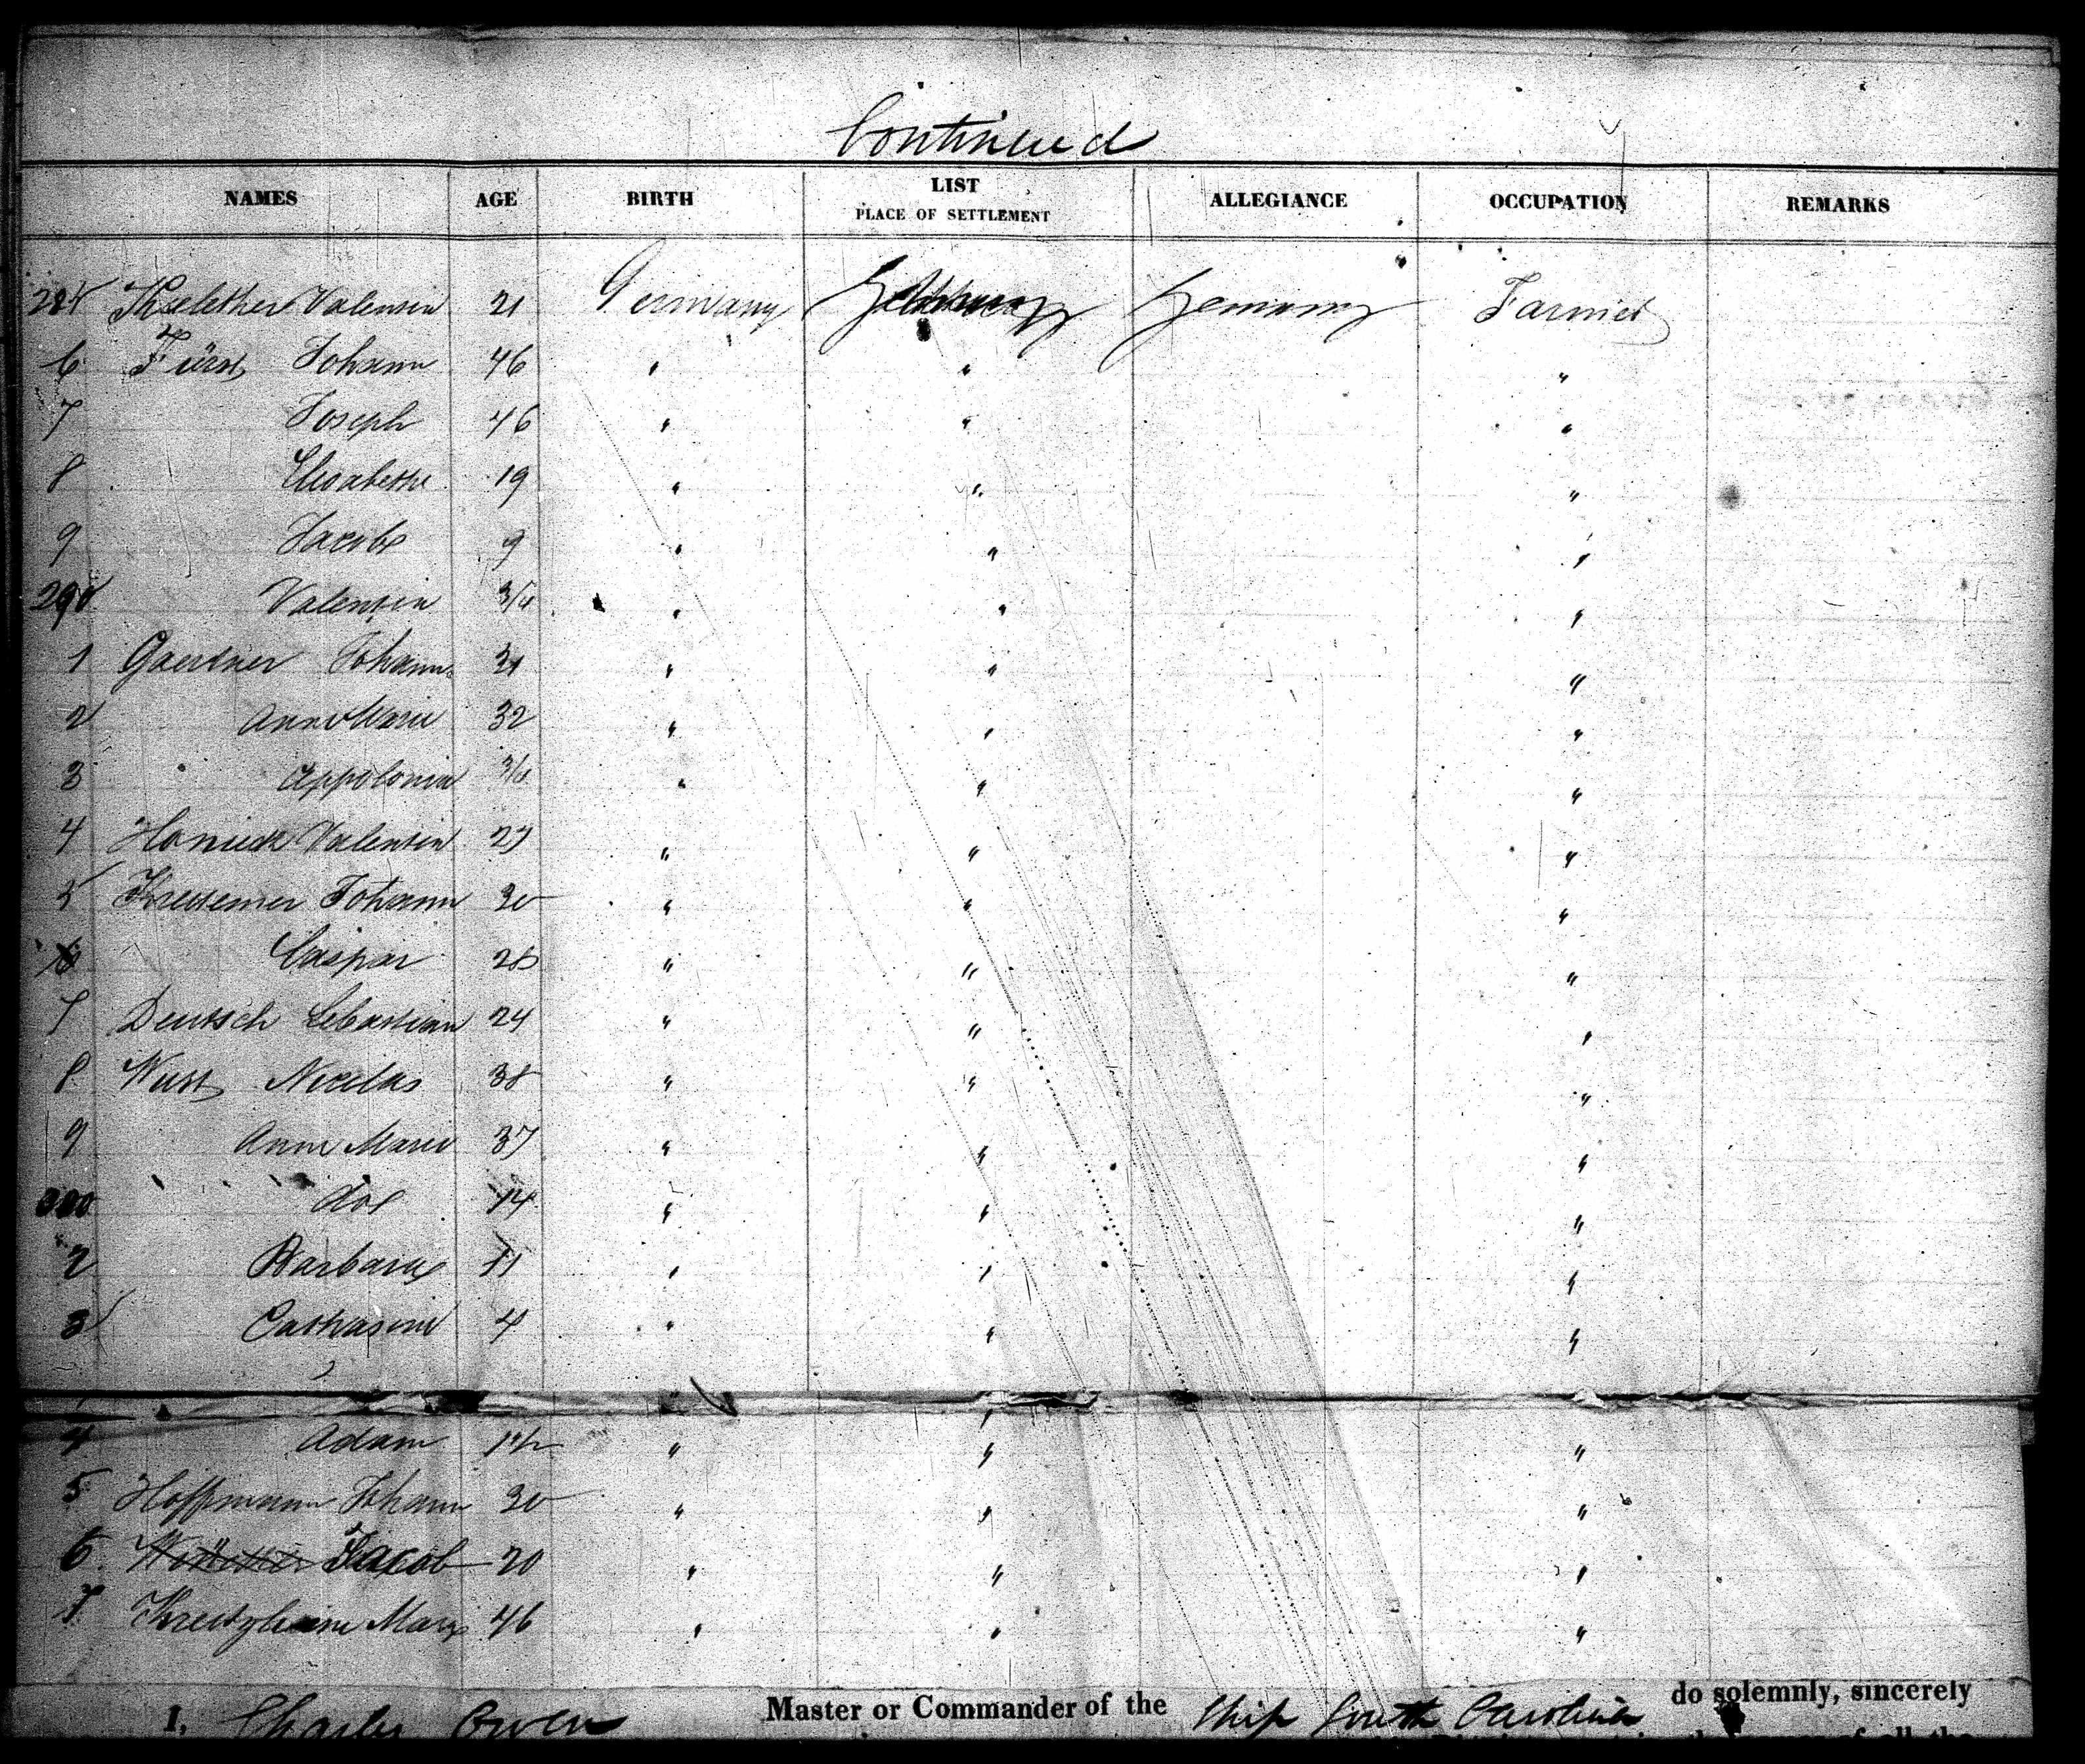 Continued
NAMES AGE BIRTH LIST PLACE OF SETTLEMENT ALLEGIANCE OCCUPATION REMARKS
285 Valentin 21 Germany Germany Farmer
6 Fürst Johann 46 " " "
7 Joseph 46 " " "
8 Elisabetha 19 " " "
9 Jacob 9 " " "
290 Valentin " " "
1 Gaertner Johann 31 " " "
2 Anna Marie 32 " " "
3 Appolonia " " "
4 Valentin 27 " " "
5 Johann 30 " " "
6 Caspar 28 " " "
7 Deutsch Sebastian 24 " " "
8 Wust Nicolas 38 " " "
9 Anna Marie 37 " " "
300 14 " " "
2 Barbara 11 " " "
3 Catharine 4 " " "
4 Adam 1 1/2 " " "
5 Hoffmann Johann 30 " " "
6 Jacob 20 " " "
7 46 " " "
I, Charles Owen Master or Commander of the Ship South Carolina do solemnly, sincerely